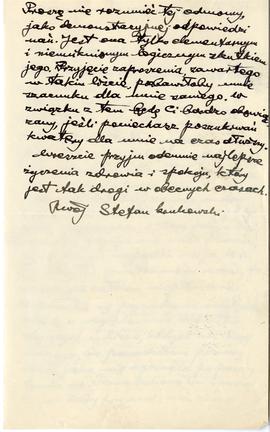 Proszę nie rozumieć tej odmowy,
jako demonstracyjnej odpowiedzi
na nań. Jest ona tylko elementarnym
i nieuniknionym logicznym skutkiem
jego. Przyjęcie zaproszenia zawartego
w takim liście, pozbawiłoby mnie
szacunku dla mnie samego. W
związku z tem będę Ci bardzo obowią
zany, jeśli poniechasz poszukiwań
kwatery dla mnie na czas
Wreszcie przyjm odemnie najlepsze
życzenia zdrowia i spokoju, który
jest tak drogi w obecnych czasach.
Twój Stefan